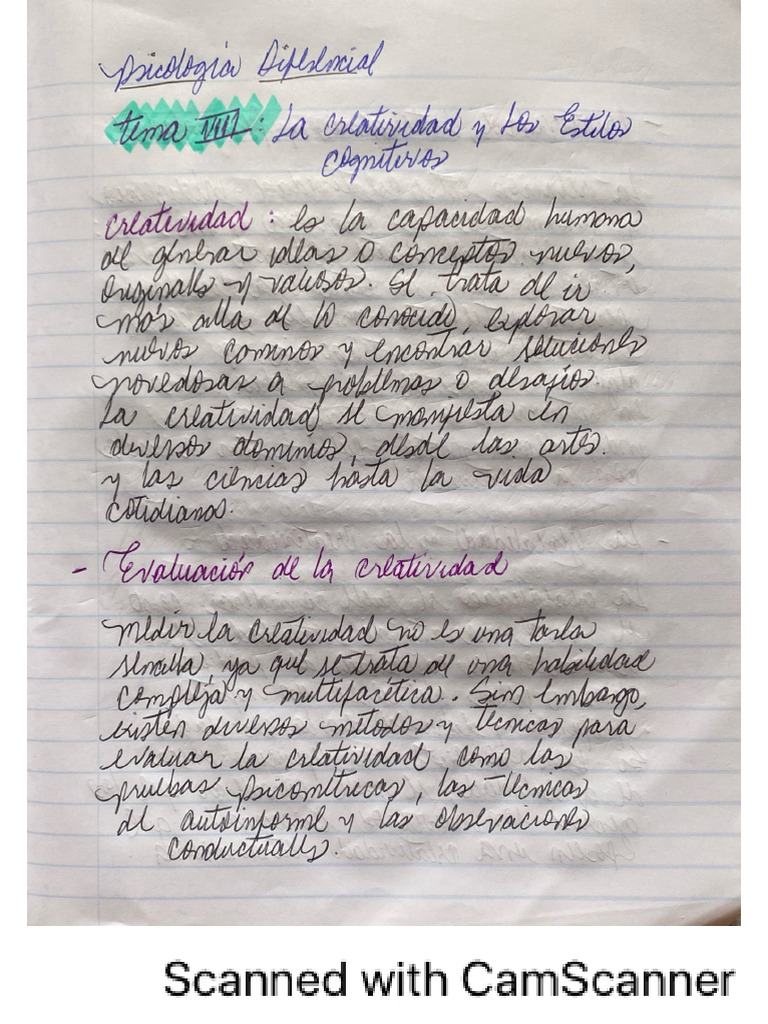 Psicología Diferencial
tema VIII: La creatividad y Los Estilos
Cognitivos
Creatividad: es la capacidad humana
de generar ideas o conceptos nuevos,
originales y valiosos. Se trata de ir
más alla de lo conocido, explorar
nuevos caminos y encontrar soluciones
novedosas a problemas o desafíos.
La creatividad se manifiesta en
diversos dominios, desde las artes
y las ciencias hasta la vida
cotidiana.
- Evaluación de la creatividad
Medir la creatividad no es una tarea
sencilla, ya que se trata de una habilidad
compleja y multifacética. Sim embargo,
existen diversos métodos y técnicas para
evaluar la creatividad como las
pruebas psicométricas, las técnicas
de autoinforme y las observaciones
conductuales.
Scanned with CamScanner